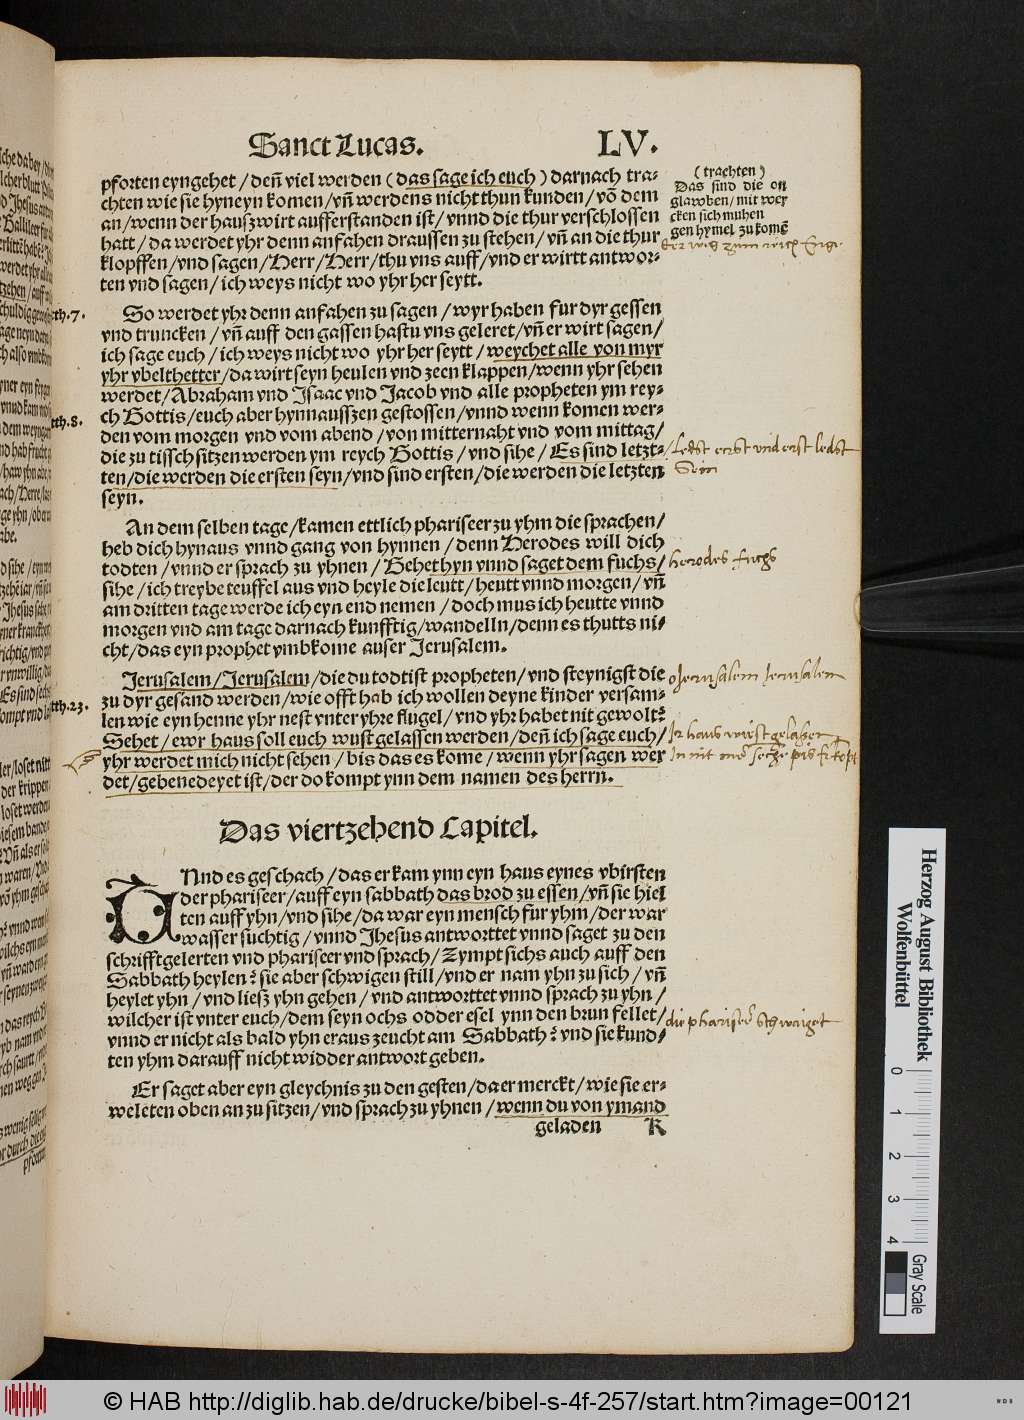 Sanct Lucas. LV.
pforten eyngehet / deñ viel werden ( das sage ich euch ) darnach tra-
chten wie sie hyneyn komen / vñ werdens nicht thun kunden / võ dem
an / wenn der hauszwirt aufferstanden ist / vnnd die thur verschlossen
hatt / da werdet yhr denn anfahen draussen zu stehen / vñ an die thur
klopffen / vnd sagen / Herr / Herr / thu vns auff / vnd er wirtt antwor-
ten vnd sagen / ich weys nicht wo yhr her seytt.
(trachten)
Das sind die on
glawben / mit wer
cken sich muhen
gen hymel zu komẽ
So werdet yhr denn anfahen zu sagen / wyr haben fur dyr gessen
vnd truncken / vñ auff den gassen hastu vns geleret / vñ er wirt sagen /
ich sage euch / ich weys nicht wo yhr her seytt / weychet alle von myr
yhr vbelthetter / da wirt seyn heulen vnd zeen klappen / wenn yhr sehen
werdet / Abraham vnd Isaac vnd Jacob vnd alle propheten ym rey-
ch Gottis / euch aber hynnausszen gestossen / vnnd wenn komen wer-
den vom morgen vnd vom abend / von mitternaht vnd vom mittag /
die zu tissch sitzen werden ym reych Gottis / vnd sihe / Es sind letzt-
ten / die werden die ersten seyn / vnd sind ersten / die werden die letzten
seyn.
th. 7.
th. 8.
letst erst vnd erst letst
Sein
An dem selben tage / kamen ettlich phariseer zu yhm die sprachen /
heb dich hynaus vnnd gang von hynnen / denn Herodes will dich
todten / vnnd er sprach zu yhnen / Gehet hyn vnnd saget dem fuchs /
sihe / ich treybe teuffel aus vnd heyle die leutt / heutt vnnd morgen / vñ
am dritten tage werde ich eyn end nemen / doch mus ich heutte vnnd
morgen vnd am tage darnach kunfftig / wandelln / denn es thutts ni-
cht / das eyn prophet vmbkome auser Jerusalem.
herodes fuchs
Jerusalem / Jerusalem / die du todtist propheten / vnd steynigst die
zu dyr gesand werden / wie offt hab ich wollen deyne kinder versam-
len wie eyn henne yhr nest vnter yhre flugel / vnd yhr habet nit gewolt?
Sehet / ewr haus soll euch wust gelassen werden / deñ ich sage euch /
yhr werdet mich nicht sehen / bis das es kome / wenn yhr sagen wer
det / gebenedeyet ist / der do kompt ynn dem namen des herrn.
th. 23.
o Jerusalem Jerusalem
Das viertzehend Capitel.
VNnd es geschach / das er kam ynn eyn haus eynes vbirsten
der phariseer / auff eyn sabbath das brod zu essen / vñ sie hiel
ten auff yhn / vnd sihe / da war eyn mensch fur yhm / der war
wasser suchtig / vnnd Jhesus antworttet vnnd saget zu den
schrifftgelerten vnd phariseer vnd sprach / Zympt sichs auch auff den
Sabbath heylen? sie aber schwigen still / vnd er nam yhn zu sich / vñ
heylet yhn / vnd liesz yhn gehen / vnd antworttet vnnd sprach zu yhn /
wilcher ist vnter euch / dem seyn ochs odder esel ynn den brun fellet /
vnnd er nicht als bald yhn eraus zeucht am Sabbath? vnd sie kund-
ten yhm darauff nicht widder antwort geben.
die phariseer schwaiget
Er saget aber eyn gleychnis zu den gesten / da er merckt / wie sie er-
weleten oben an zu sitzen / vnd sprach zu yhnen / wenn du von ymand
geladen K
Herzog August Bibliothek
Wolfenbüttel
0 1 2 3 4
Gray Scale
© HAB http://diglib.hab.de/drucke/bibel-s-4f-257/start.htm?image=00121